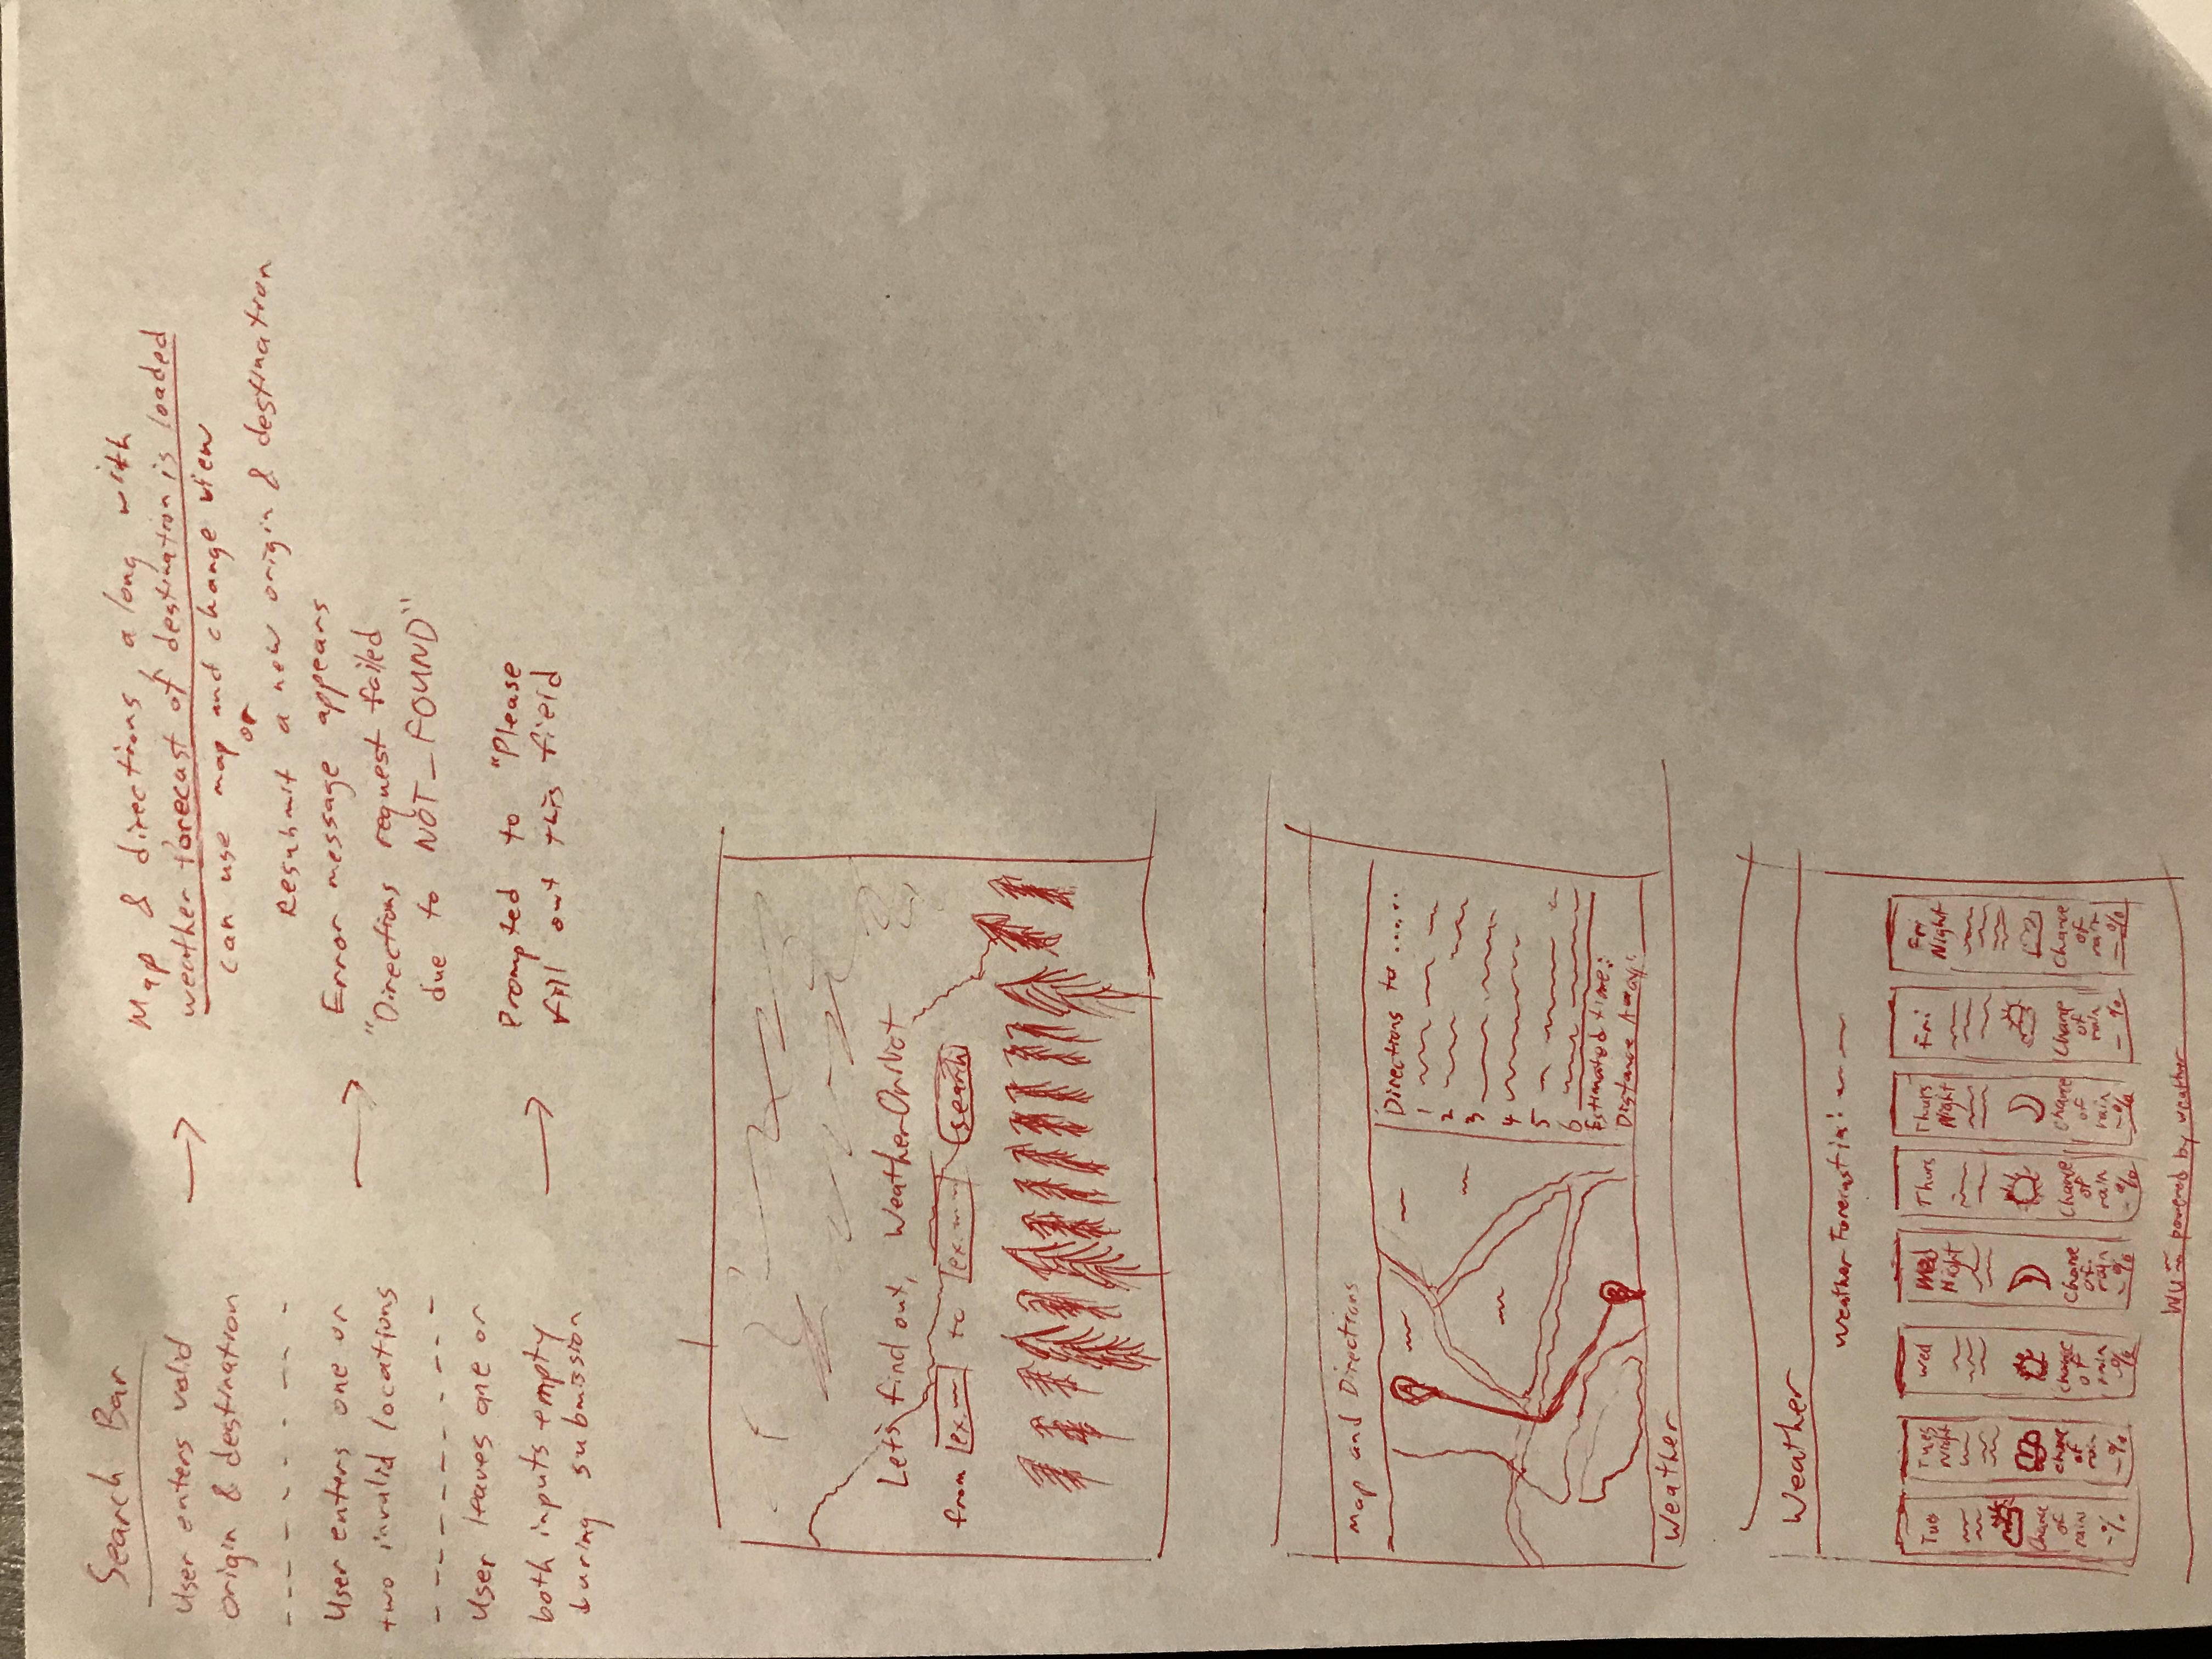 Search Bar
User enters valid
origin & destination
Map & directions, along with
weather forecast of destination is loaded
can use map and change view
or
Resubmit a new origin & destination
User enters one or
two invalid locations
Error message appears
"Directions request failed
due to NOT_FOUND"
User leaves one or
both inputs empty
during submission
Prompted to "Please
fill out this field
Let's find out, WeatherOrNot
from ex. to ex. search
Map and Directions
A
B
Directions to ......
1
2
3
4
5
6
Estimated time:
Distance Away:
Weather
Weather
Weather Forecast in:
Tues
Chance
of
rain
-%
Tues
Night
chance
of
rain
-%
Wed
chance
of
rain
-%
Wed
Night
Chance
of
rain
-%
Thurs
Chance
of
rain
-%
Thurs
Night
Chance
of
rain
-%
Fri
Chance
of
rain
-%
Fri
Night
Chance
of
rain
-%
WU powered by weather